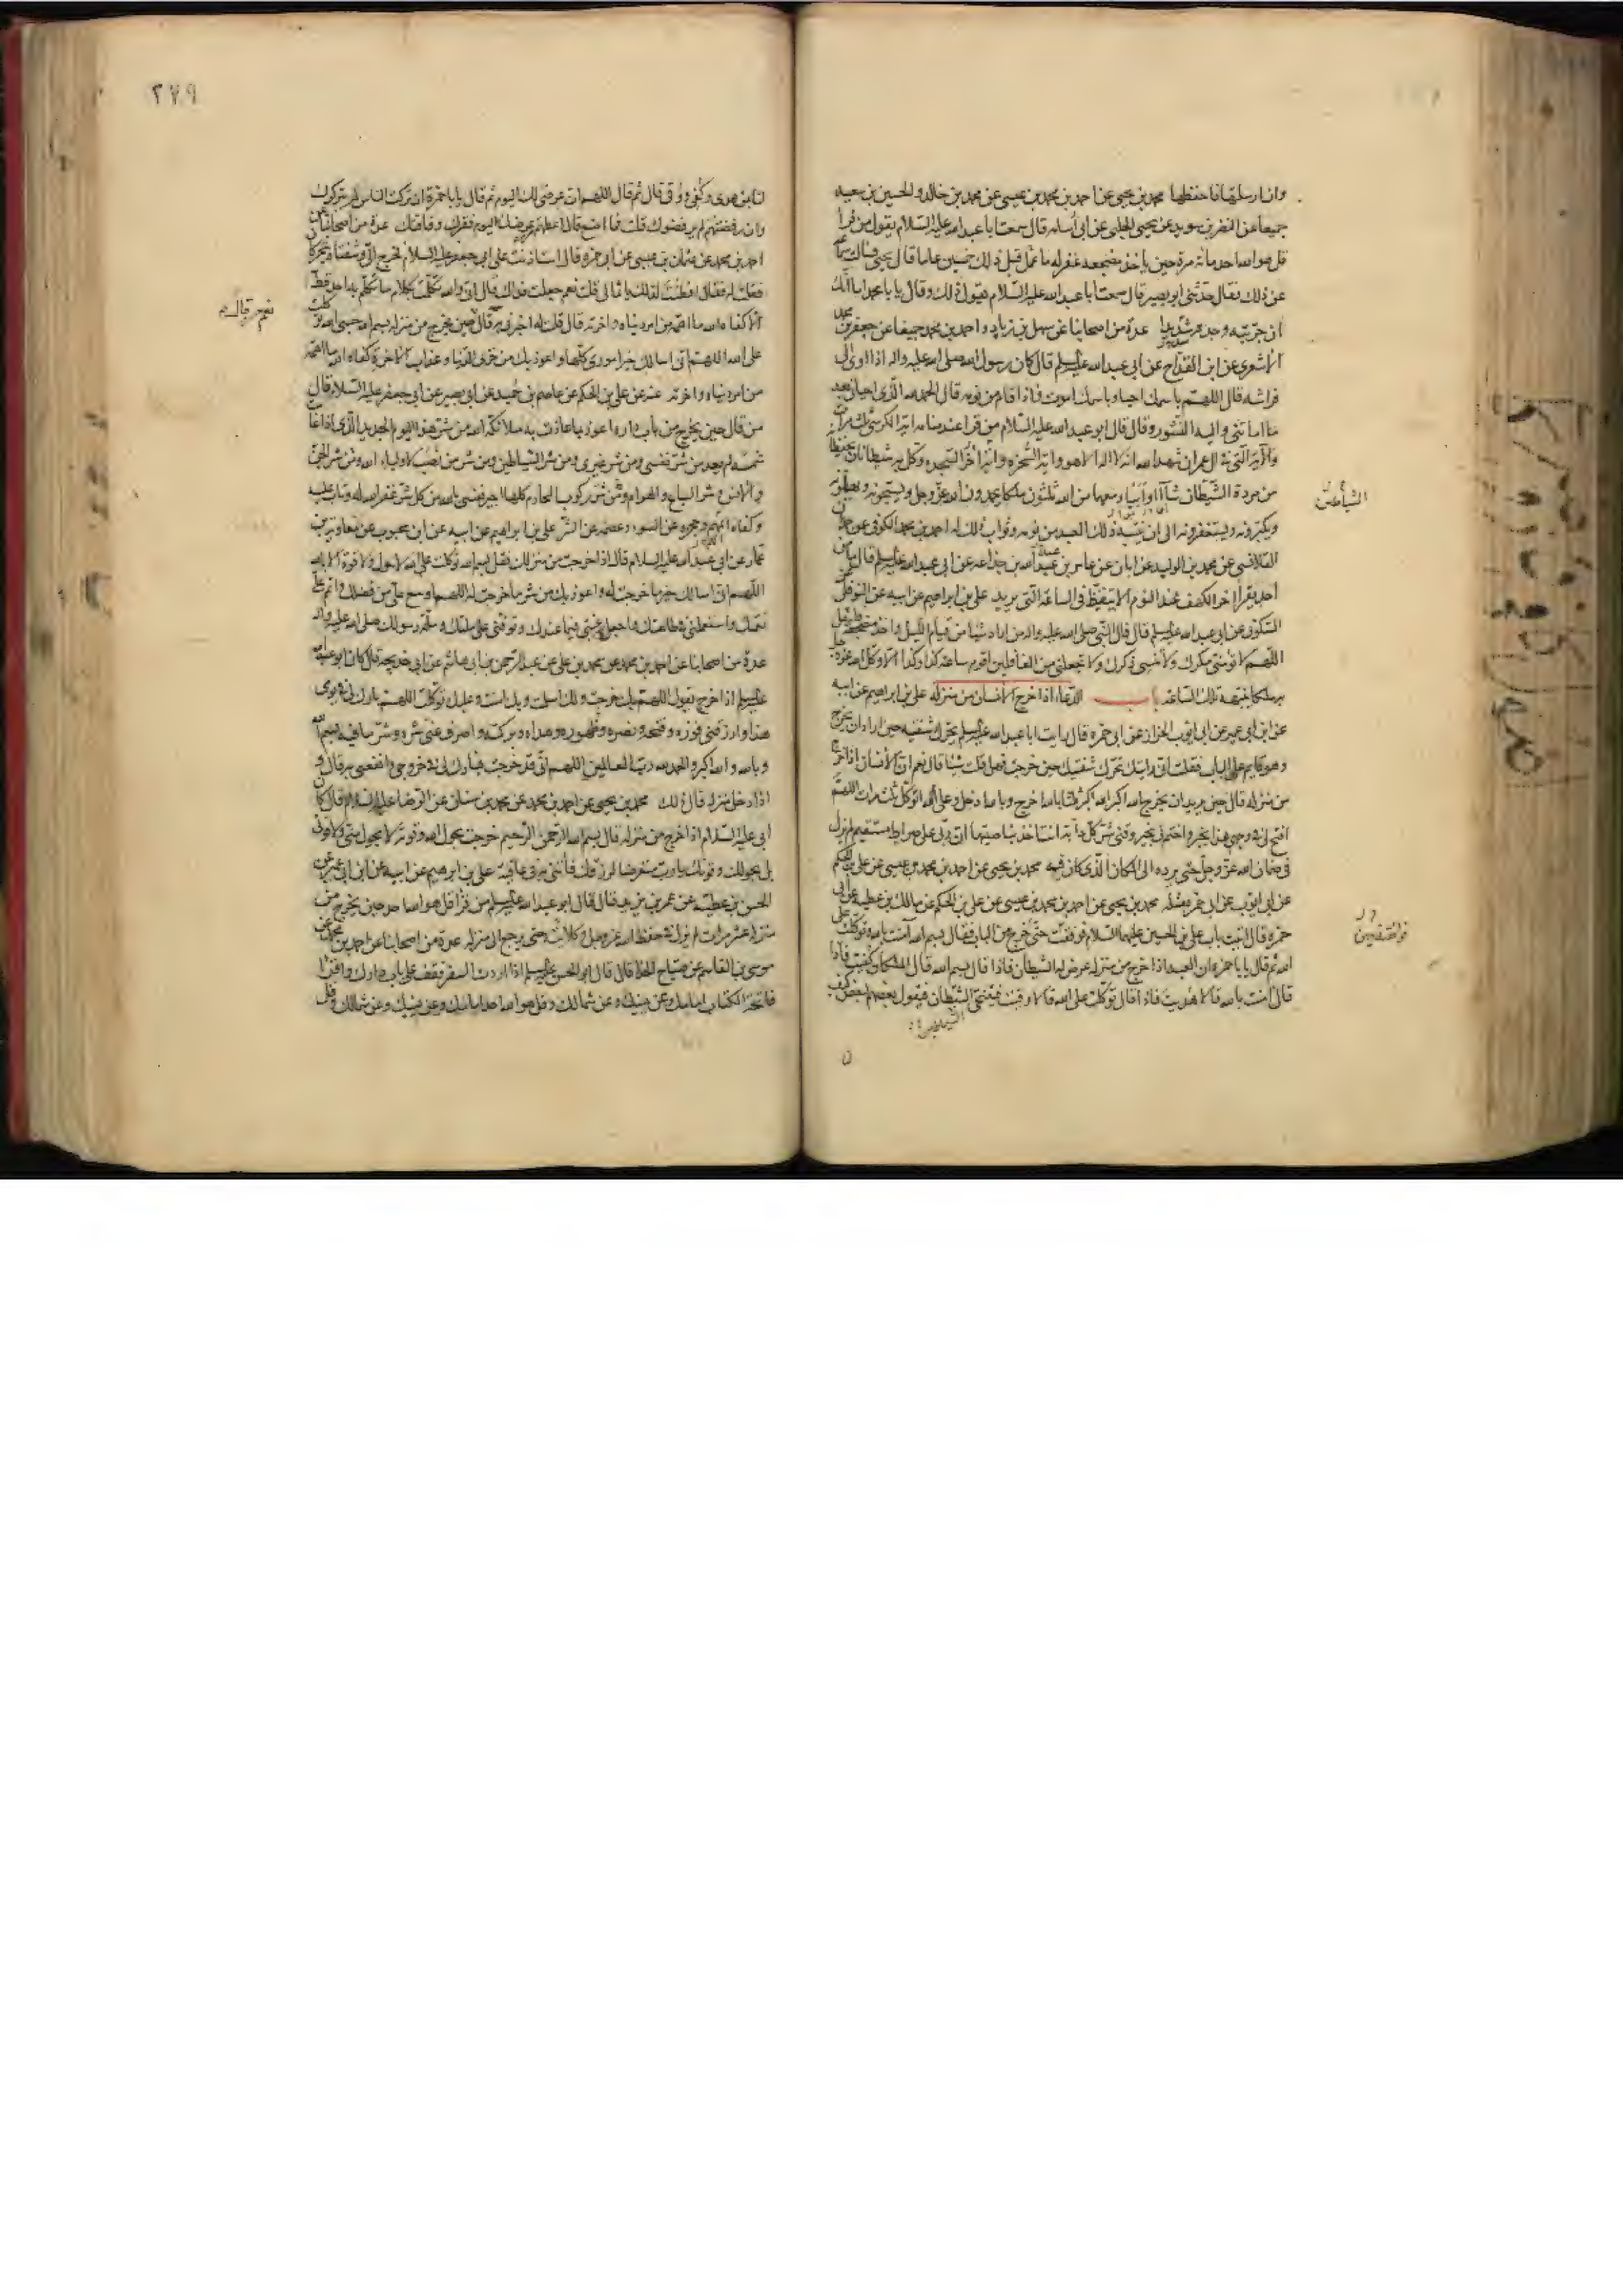 وان ارسلتها فاحفظها محمد بن يحيى عن احمد بن محمد بن عيسى عن محمد بن خالد والحسين بن سعيد
جميعا عن النضر بن سويد عن يحيى الحلبى عن ابى اسامه قال سمعت ابا عبد الله عليه السلام يقول من قرا
قل هو الله احد مائة مرة حين ياخذ مضجعه غفر له ما عمل قبل ذلك خمسين عاما قال يحيى فسالت سماعة
عن ذلك فقال حدثنى ابو بصير قال سمعت ابا عبد الله عليه السلام يقول ذلك وقال يا با محمد اما انك
ان جربته وجدته سديدا عدة من اصحابنا عن سهل بن زياد و احمد بن محمد جميعا عن جعفر بن محمد
الاشعرى عن ابن القداح عن ابى عبد الله عليه السلم قال كان رسول الله صلى الله عليه واله اذا اوى الى
فراشه قال اللهم باسمك احيا وباسمك اموت فاذا قام من نومه قال الحمد لله الذى احيانى بعد
ما اماتنى واليه النشور وقال قال ابو عبد الله عليه السلام من قرا عند منامه اية الكرسى ثلث مرات
والاية التى فى ال عمران شهد الله انه لا اله الا هو واية السخرة واية السجدة وكل به شيطانان يحفظانه
من مردة الشياطين شاؤا او ابوا ومعهما من الله ثلثون ملكا يحمدون الله عز وجل ويسبحونه ويهللونه
الشياطين
ويكبرونه ويستغفرونه الى ان ينتبه ذلك العبد من نومه وثواب ذلك له احمد بن محمد الكوفى عن حمدان
القلانسى عن محمد بن الوليد عن ابان عن عامر بن عبد الله بن جذاعه عن ابى عبد الله عليه السلم قال ما من
احد يقرأ اخر الكهف عند النوم الا تيقظ فى الساعة التى يريد على بن ابراهيم عن ابيه عن النوفلى
السكونى عن ابى عبد الله عليه السلم قال قال النبى صلى الله عليه واله من اراد شيئا من قيام الليل واخذ مضجعه فليقل
اللهم لا تؤمنى مكرك ولا تنسنى ذكرك ولا تجعلنى من الغافلين اقوم ساعة كذا وكذا الا وكل الله عز وجل
به ملكا ينبهه تلك الساعة باب الدعاء اذا خرج الانسان من منزله على بن ابراهيم عن ابيه
عن ابن ابى عمير عن ابى ايوب الخزاز عن ابى حمزه قال رايت ابا عبد الله عليه السلم يحرك شفتيه حين اراد ان يخرج
وهو قايم على الباب فقلت انى رايتك تحرك شفتيك حين خرجت فهل قلت شيئا قال نعم ان الانسان اذا خرج
من منزله قال حين يريد ان يخرج الله اكبر الله اكبر ثلثا بالله اخرج وبالله ادخل وعلى الله اتوكل ثلث مرات اللهم
افتح لى فى وجهى هذا بخير واختم لى بخير وقنى شر كل دابة انت اخذ بناصيتها ان ربى على صراط مستقيم لم يزل
فى ضمان الله عز وجل حتى يرده الى المكان الذى كان فيه محمد بن يحيى عن احمد بن محمد بن عيسى عن على بن الحكم
عن ابى ايوب عن ابى حمزه مثله محمد بن يحيى عن احمد بن محمد بن عيسى عن على بن الحكم عن مالك بن عطيه عن ابى
حمزه قال اتيت باب على بن الحسين عليهما السلام فوافقت حين خرج من الباب فقال بسم الله امنت بالله وتوكلت على
الله ثم قال يا با حمزه ان العبد اذا خرج من منزله عرض له الشيطان فاذا قال بسم الله قال الملكان كفيت فاذا
قال امنت بالله قالا هديت فاذا قال توكلت على الله قالا وقيت فيتنحى الشيطان فيقول بعضهم لبعض كيف
٢٧٩
لنا بمن هدى وكفى ووقى قال ثم قال اللهم ان عرضى لك اليوم ثم قال يا با حمزة ان تركت الناس لم يتركوك
وان رفضتهم لم يرفضوك قلت فما اصنع قال اعطهم عرضك اليوم فقرك وفاقتك عدة من اصحابنا عن
احمد بن محمد عن عثمان بن عيسى عن ابى حمزه قال استاذنت على ابى جعفر عليه السلام فخرج الى وشفتاه تتحركان
فقلت له فقال افطنت لذلك يا ثمالى قلت نعم جعلت فداك قال انى والله تكلمت بكلام ما تكلم به احد قط
الا كفاه الله ما اهمه من امر دنياه واخرته قال قلت له اخبرنى به قال نعم من قال حين يخرج من منزله بسم الله حسبى الله توكلت
على الله اللهم انى اسالك خير امورى كلها واعوذ بك من خزى الدنيا وعذاب الاخرة كفاه الله ما اهمه
من امر دنياه واخرته عنه عن على بن الحكم عن عاصم بن حميد عن ابى بصير عن ابى جعفر عليه السلام قال
من قال حين يخرج من باب داره اعوذ بما عاذت به ملائكة الله من شر هذا اليوم الجديد الذى اذا غابت
شمسه لم يعد من شر نفسى ومن شر غيرى ومن شر الشياطين ومن شر من نصب لاولياء الله ومن شر الجن
والانس و شر السباع والهوام ومن شر ركوب المحارم كلها اجير نفسى بالله من كل شر غفر الله له وتاب عليه
وكفاه المهم وحجزه عن السوء وعصمه عن الشر على بن ابراهيم عن ابيه عن ابن محبوب عن معاوية بن
عمار عن ابى عبد الله عليه السلام قال اذا خرجت من منزلك فقل بسم الله توكلت على الله لا حول ولا قوة الا بالله
اللهم انى اسالك خير ما خرجت له واعوذ بك من شر ما خرجت له اللهم اوسع على من فضلك واتم على
نعمتك واستعملنى فى طاعتك واجعل رغبتى فيما عندك وتوفنى على ملتك وملة رسولك صلى الله عليه واله
عدة من اصحابنا عن احمد بن محمد عن محمد بن على عن عبد الرحمن بن ابى هاشم عن ابى خديجه قال كان ابو عبد الله
عليه السلم اذا خرج يقول اللهم بك خرجت ولك اسلمت وبك امنت وعليك توكلت اللهم بارك لى فى يومى
هذا وارزقنى فوزه وفتحه ونصره وطهوره وهداه وبركته واصرف عنى شره وشر ما فيه بسم الله
وبالله والله اكبر والحمد لله رب العالمين اللهم انى قد خرجت فبارك لى فى خروجى وانفعنى به قال و
اذا دخل منزله قال ذلك محمد بن يحيى عن احمد بن محمد عن محمد بن سنان عن الرضا عليه السلام قال كان
ابى عليه السلام اذا خرج من منزله قال بسم الله الرحمن الرحيم خرجت بحول الله وقوته لا بحول منى ولا قوتى
بل بحولك وقوتك يا رب متعرضا لرزقك فاتنى به فى عافية على بن ابراهيم عن ابيه عن ابن ابى عمير عن
الحسن بن عطيه عن عمر بن يزيد قال قال ابو عبد الله عليه السلم من قرأ قل هو الله احد حين يخرج من
منزله عشر مرات لم يزل فى حفظ الله عز وجل وكلائته حتى يرجع الى منزله عدة من اصحابنا عن احمد بن محمد عن
موسى بن القاسم عن صباح الحذا قال قال ابو الحسن عليه السلم اذا اردت السفر فقف على باب دارك واقرا
فاتحة الكتاب امامك وعن يمينك وعن شمالك وقل هو الله احد امامك وعن يمينك وعن شمالك وقل